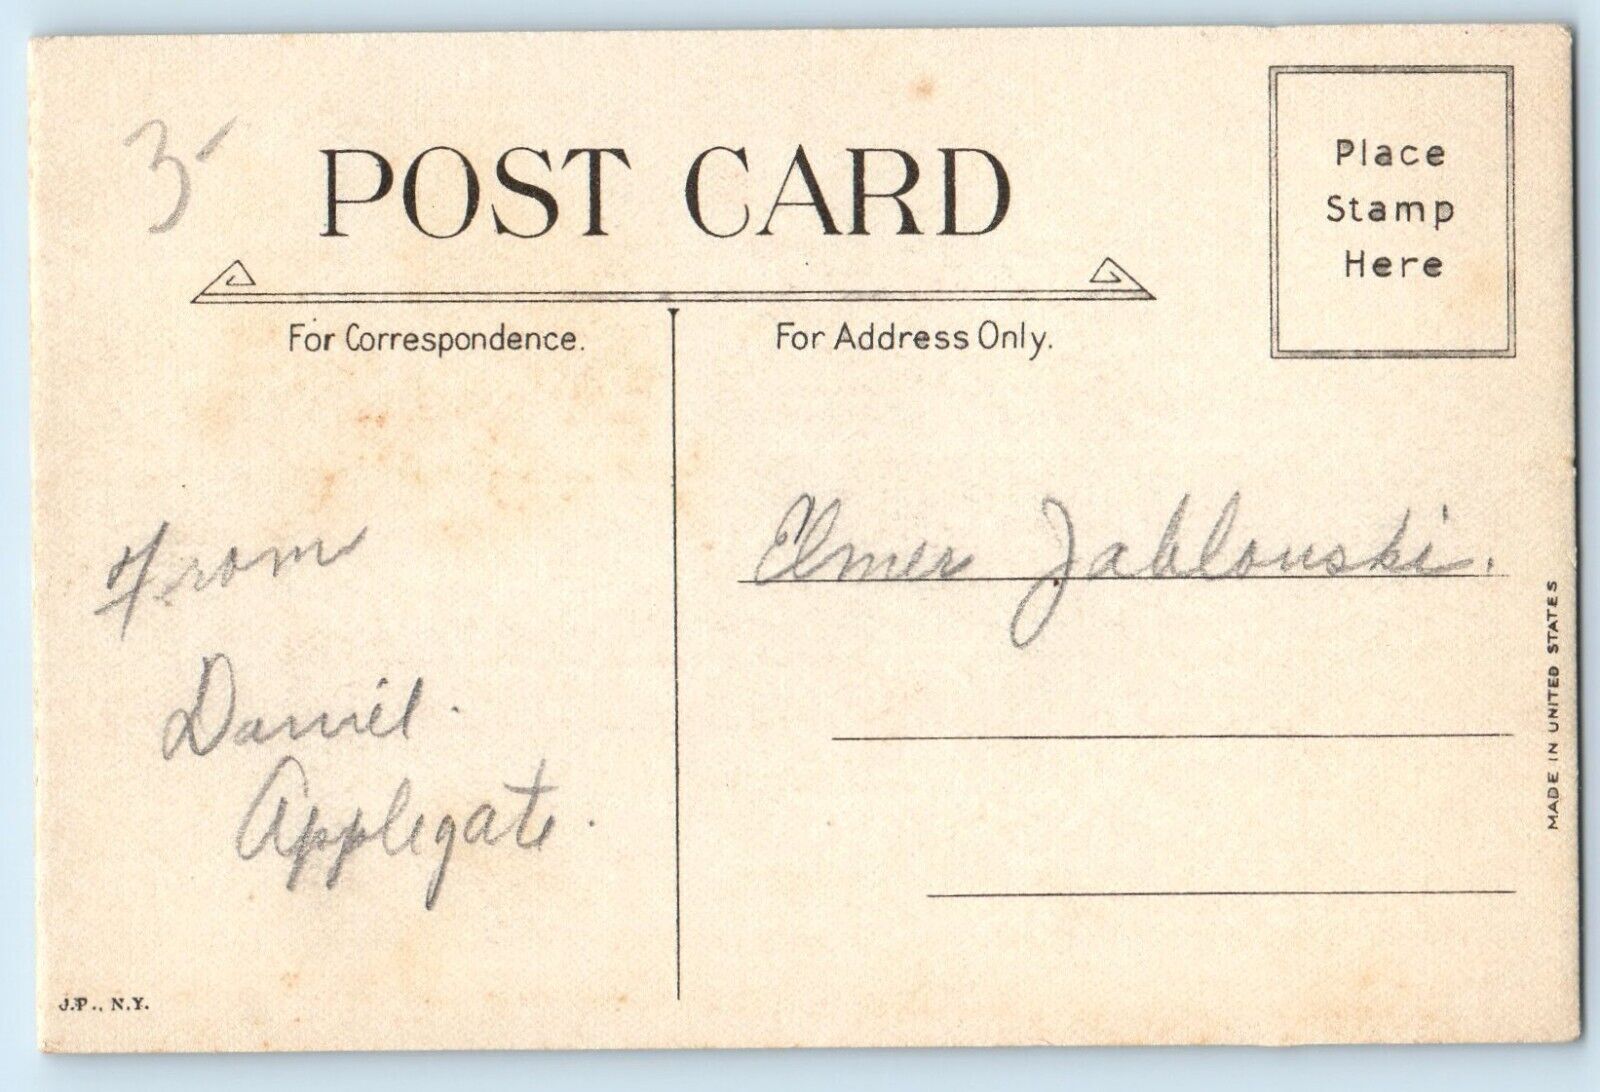 3-
POST CARD
Place
Stamp
Here
For Correspondence.
For Address Only.
From
Daniel.
Applegate.
Elmer Jablonski.
MADE IN UNITED STATES
J.P., N.Y.